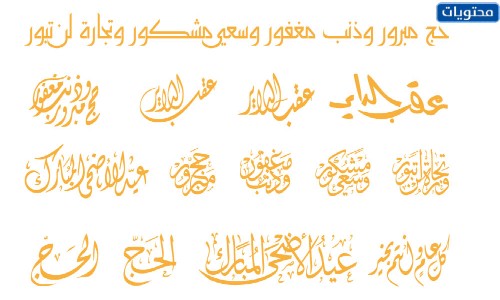 محتويات
حج مبرور وذنب مغفور وسعي مشكور وتجارة لن تبور
عقبى لكم الدايم عقبال الداير عقبال الداير حج مبرور وذنب مغفور
وتجارة لن تبور وسعي مشكور وذنب مغفور حج مبرور عيد الأضحى المبارك
كل عام وانتم بخير عيد الأضحى المبارك الحج الحج